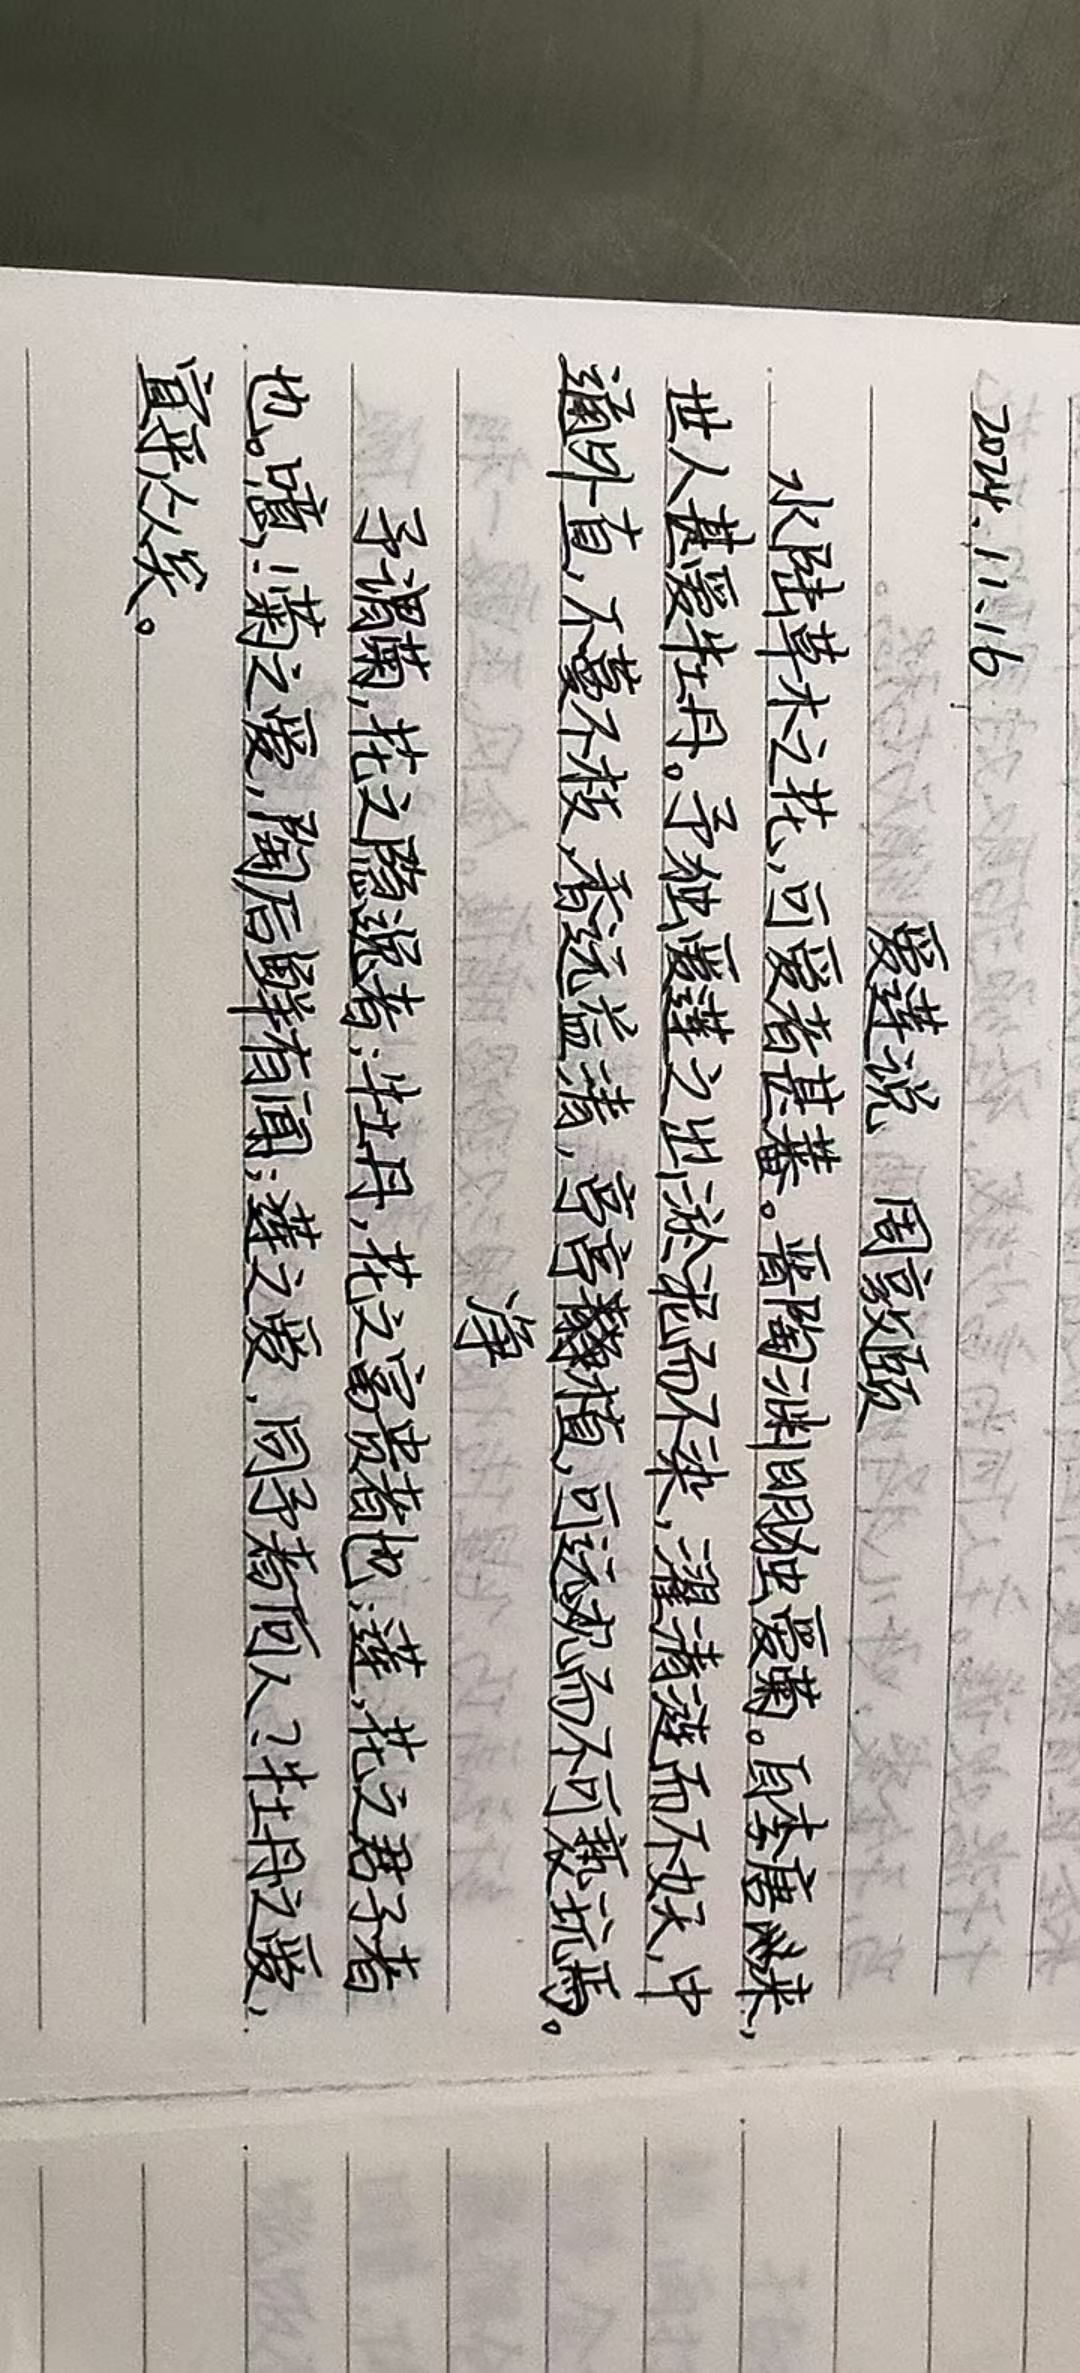 2024.11.16
爱莲说 周敦颐
水陆草木之花,可爱者甚蕃。晋陶渊明独爱菊。自李唐来,
世人甚爱牡丹。予独爱莲之出淤泥而不染,濯清涟而不妖,中
通外直,不蔓不枝,香远益清,亭亭静植,可远观而不可亵玩焉。
净
予谓菊,花之隐逸者;牡丹,花之富贵者也;莲,花之君子者
也。噫!菊之爱,陶后鲜有闻;莲之爱,同予者何人?牡丹之爱,
宜乎众矣。